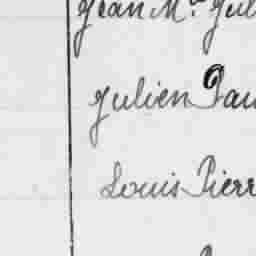 Jean M.
Julien Pau
Louis Pierr